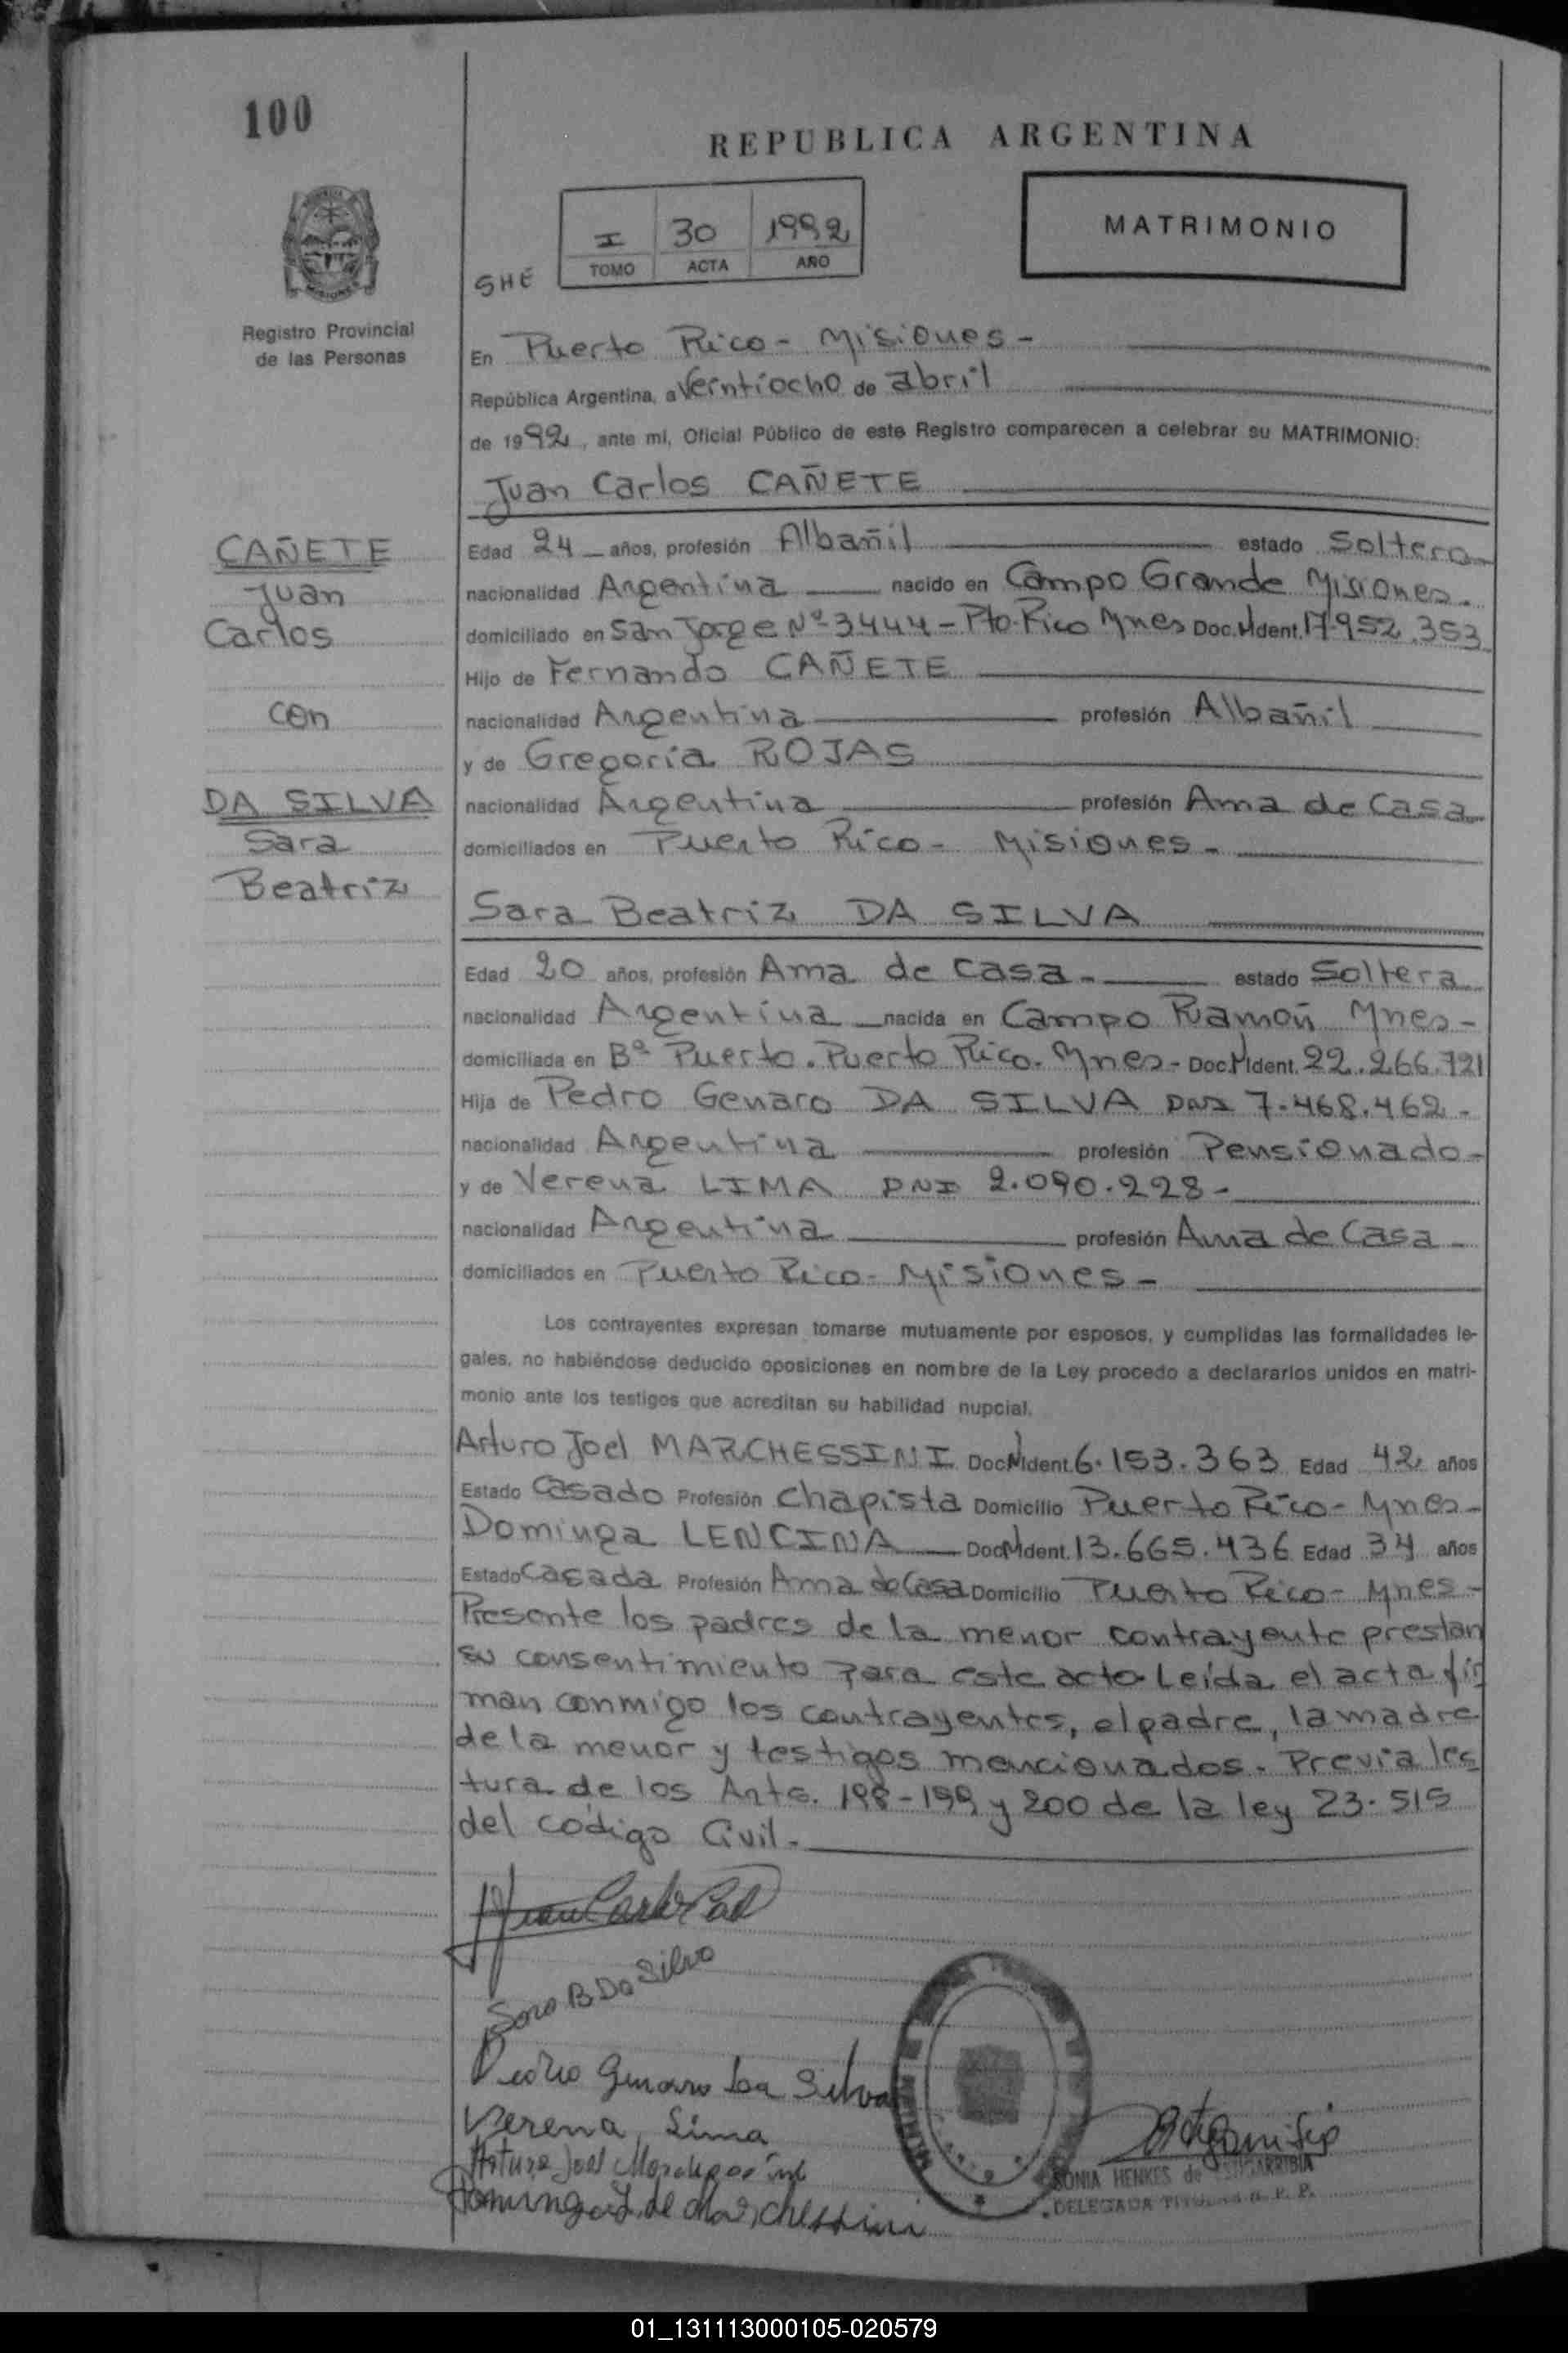 100
REPUBLICA ARGENTINA
I 30 1992
TOMO ACTA AÑO
MATRIMONIO
SHE
Registro Provincial
de las Personas
En Puerto Rico - Misiones -
República Argentina, a Verntiocho de abril
de 1992, ante mí, Oficial Público de este Registro comparecen a celebrar su MATRIMONIO:
Juan Carlos CAÑETE
CAÑETE
Juan
Carlos
con
DA SILVA
Sara
Beatriz
Edad 24 años, profesión Albañil estado Soltero
nacionalidad Argentina nacido en Campo Grande Misiones.
domiciliado en San Jorge Nº 3444 - Pto. Rico Mnes Doc. N Ident. 17.952.353
Hijo de Fernando CAÑETE
nacionalidad Argentina profesión Albañil
y de Gregoria ROJAS
nacionalidad Argentina profesión Ama de Casa
domiciliados en Puerto Rico - Misiones -
Sara Beatriz DA SILVA
Edad 20 años, profesión Ama de casa - estado Soltera
nacionalidad Argentina nacida en Campo Ramón Mnes -
domiciliada en Bº Puerto. Puerto Rico. Mnes - Doc. N Ident. 22.266.721
Hija de Pedro Genaro DA SILVA DNI 7.468.462 -
nacionalidad Argentina profesión Pensionado -
y de Verena LIMA DNI 2.090.228 -
nacionalidad Argentina profesión Ama de Casa -
domiciliados en Puerto Rico - Misiones -
Los contrayentes expresan tomarse mutuamente por esposos, y cumplidas las formalidades le-
gales, no habiéndose deducido oposiciones en nombre de la Ley procedo a declararlos unidos en matri-
monio ante los testigos que acreditan su habilidad nupcial.
Arturo Joel MARCHESSINI Doc. N Ident. 6.153.363 Edad 42 años
Estado Casado Profesión Chapista Domicilio Puerto Rico - Mnes -
Dominga LENCINA Doc. N Ident. 13.665.436 Edad 34 años
Estado Casada Profesión Ama de Casa Domicilio Puerto Rico - Mnes -
Presente los padres de la menor contrayente prestan
su consentimiento para este acto. Leída el acta fir
man conmigo los contrayentes, el padre, la madre
de la menor y testigos mencionados. Previa lec
tura de los Arts. 198 - 199 y 200 de la ley 23.515
del código Civil -
Juan Carlos
Sara B Da Silva
Pedro Genaro Da Silva
Verena Lima
Arturo Joel Marchessini
Dominga L. de Marchessini
SONIA HENKES de
DELEGADA TITULAR R. P. P.
01_131113000105-020579